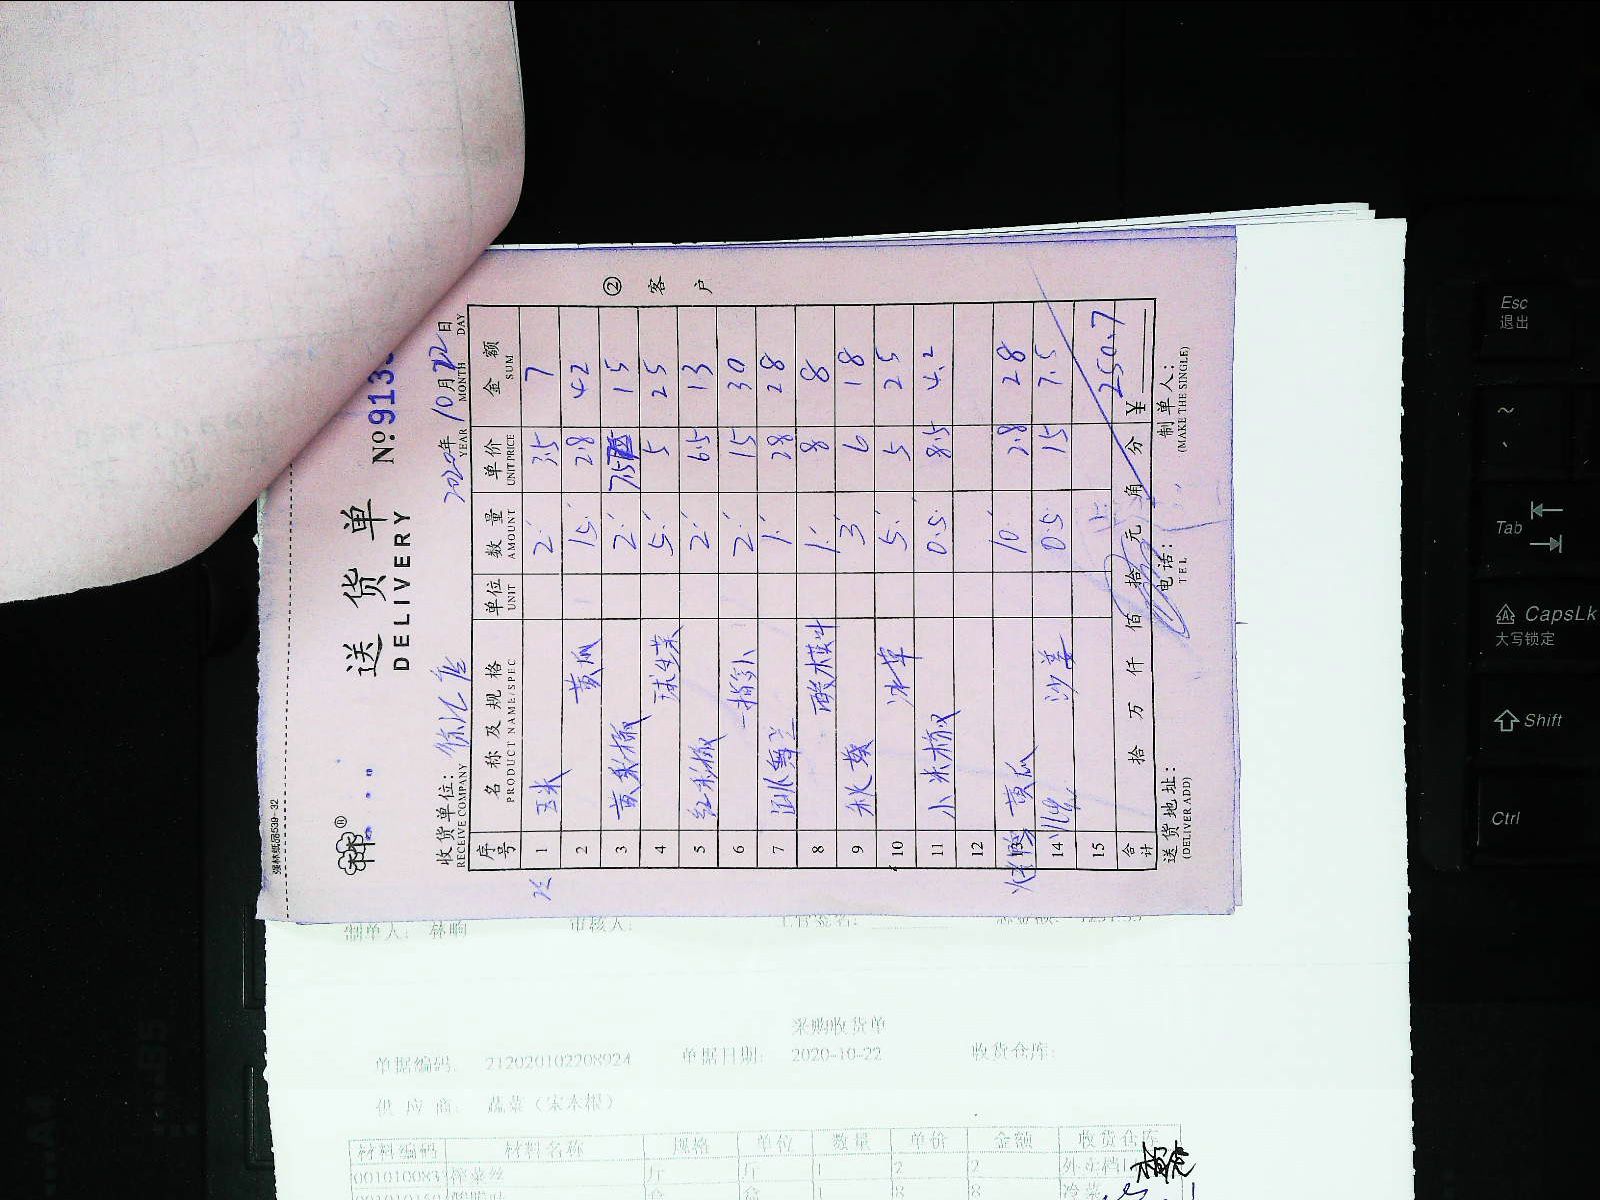 强林纸品539-32
®
送货单
DELIVERY
№ 913
收货单位：徐汇店
RECEIVE COMPANY
2020年10月22日
YEAR MONTH DAY
② 客户
序号 名称及规格 单位 数量 单价 金额
PRODUCT NAME/SPEC UNIT AMOUNT UNIT PRICE SUM
1 玉米 2 3.5 7
2 黄瓜 15 2.8 42
3 黄彩椒 2 7.5 15
4 球生菜 5 5 25
5 红彩椒 2 6.5 13
6 2 15 30
7 1 28 28
8 1 8 8
9 秋葵 3 6 18
10 冰草 5 5 25
11 小米椒 0.5 8.5 4.2
12
13 黄瓜 10 2.8 28
14 沙姜 0.5 15 7.5
15
合计 拾 万 仟 佰 拾 元 角 分 ¥ 250.7
送货地址： 电话： 制单人：
(DELIVER ADD) TEL (MAKE THE SINGLE)
制单人： 林晌 审核人：
采购收货单
单据编码： 212020102208924 单据日期： 2020-10-22 收货仓库：
供应商： 蔬菜（宋本根）
材料编码 材料名称 规格 单位 数量 单价 金额 收货仓库
001010083 榨菜丝 斤 斤 1 2 2
盒 盒 1 8 8 冷菜
Esc
退出
~
Tab
CapsLk
大写锁定
Shift
Ctrl